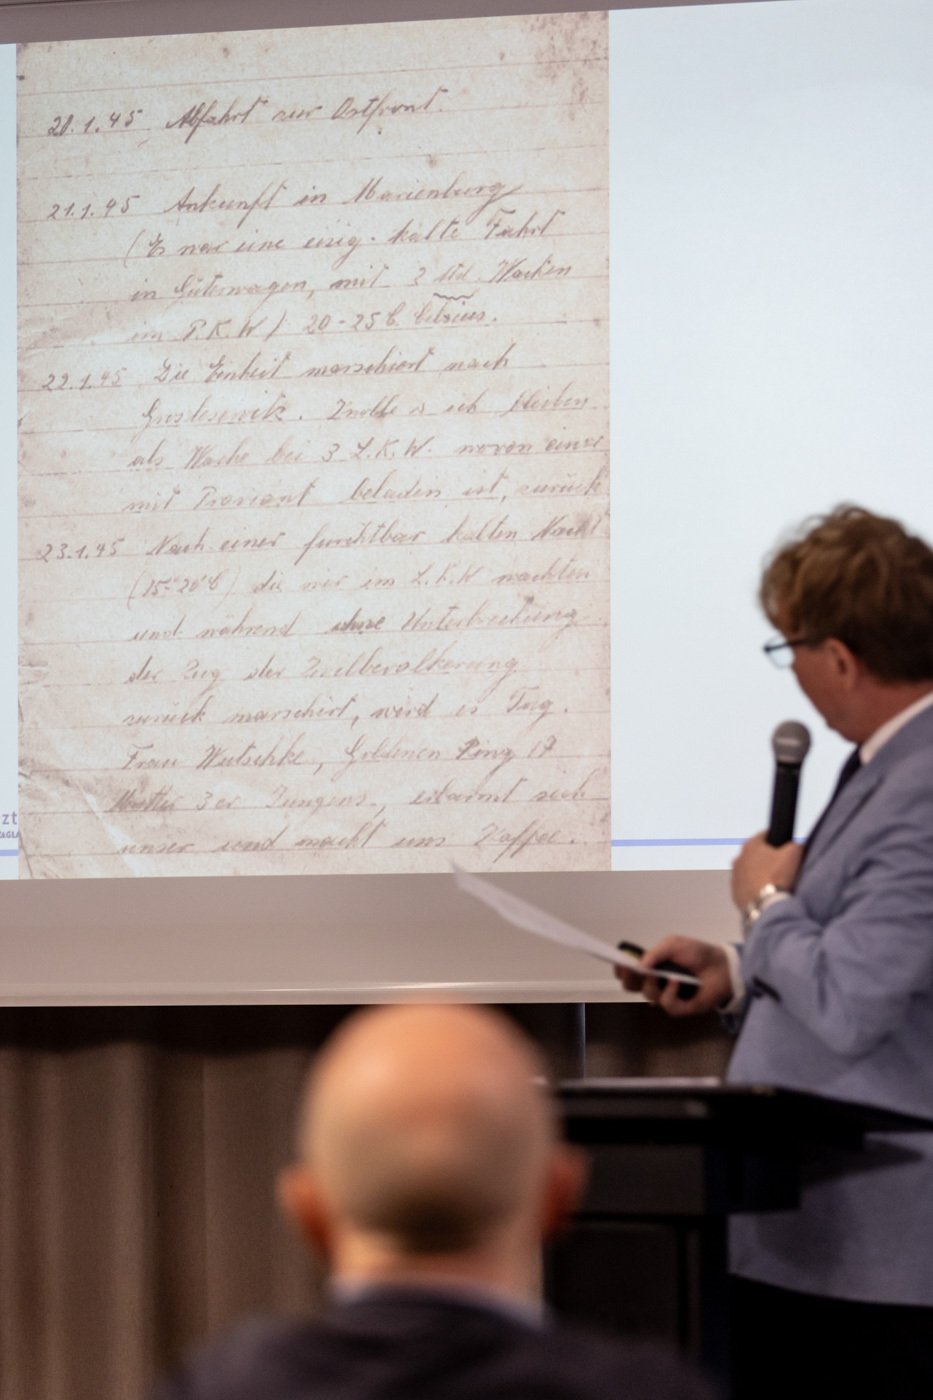 20.1.45 Abfahrt zur Ostfront.
21.1.45 Ankunft in Marienburg
(Es war eine eisig. kalte Fahrt
in Güterwagen, mit 3 Std. Wachen
im P.K.W) 20-25 C. Celsius.
22.1.45 Die Einheit marschiert nach
. u ich bleiben
als Wache bei 3 L.K.W. wovon einer
mit Proviant beladen ist, zurück
23.1.45 Nach einer furchtbar kalten Nacht
(15-20°C) die wir im L.K.W wachten
und während ohne Unterbrechung
der Zug der Zivilbevölkerung
zurück marschirt, wird es Tag.
Frau Wutschke, Goldenen Ring 17
Mutter 3er Jungens, erbarmt sich
unser und macht uns Kaffee.